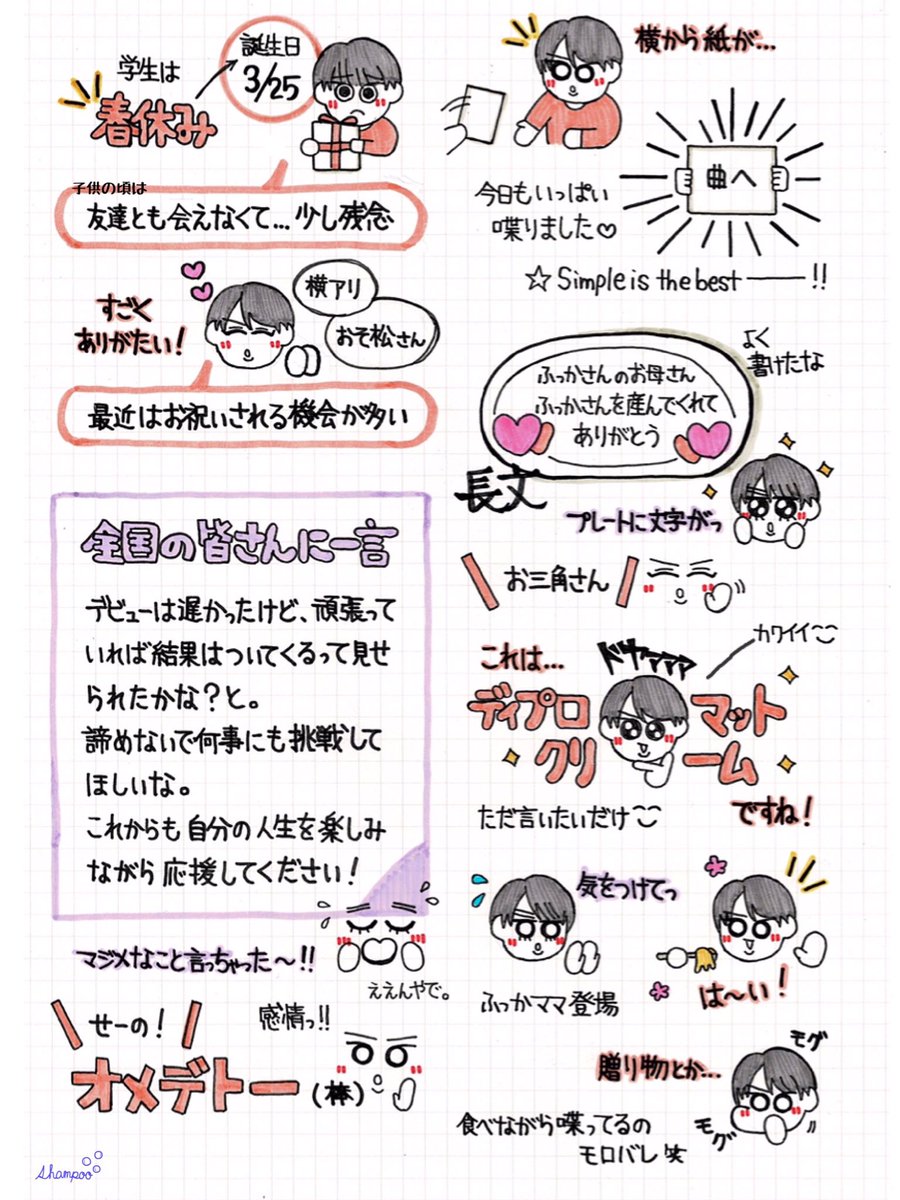 学生は
春休み
誕生日
3/25
子供の頃は
友達とも会えなくて…少し残念
すごく
ありがたい!
横アリ
おそ松さん
最近はお祝いされる機会が多い
全国の皆さんに一言
デビューは遅かったけど、頑張って
いれば結果はついてくるって見せ
られたかな?と。
諦めないで何事にも挑戦して
ほしいな。
これからも自分の人生を楽しみ
ながら応援してください!
マジメなこと言っちゃった〜!!
ええんやで。
せーの!
感情っ!!
オメデトー(棒)
Shampoo
横から紙が…
曲へ
今日もいっぱい
喋りました♡
☆Simple is the best―!!
ふっかさんのお母さん
ふっかさんを産んでくれて
ありがとう
よく
書けたな
長文
プレートに文字がっ
お三角さん
これは…
ドヤァァァ
カワイイ
ディプロマット
クリーム
ですね!
ただ言いたいだけ
気をつけてっ
ふっかママ登場
は〜い!
贈り物とか…
モグ
モグ
食べながら喋ってるの
モロバレ笑